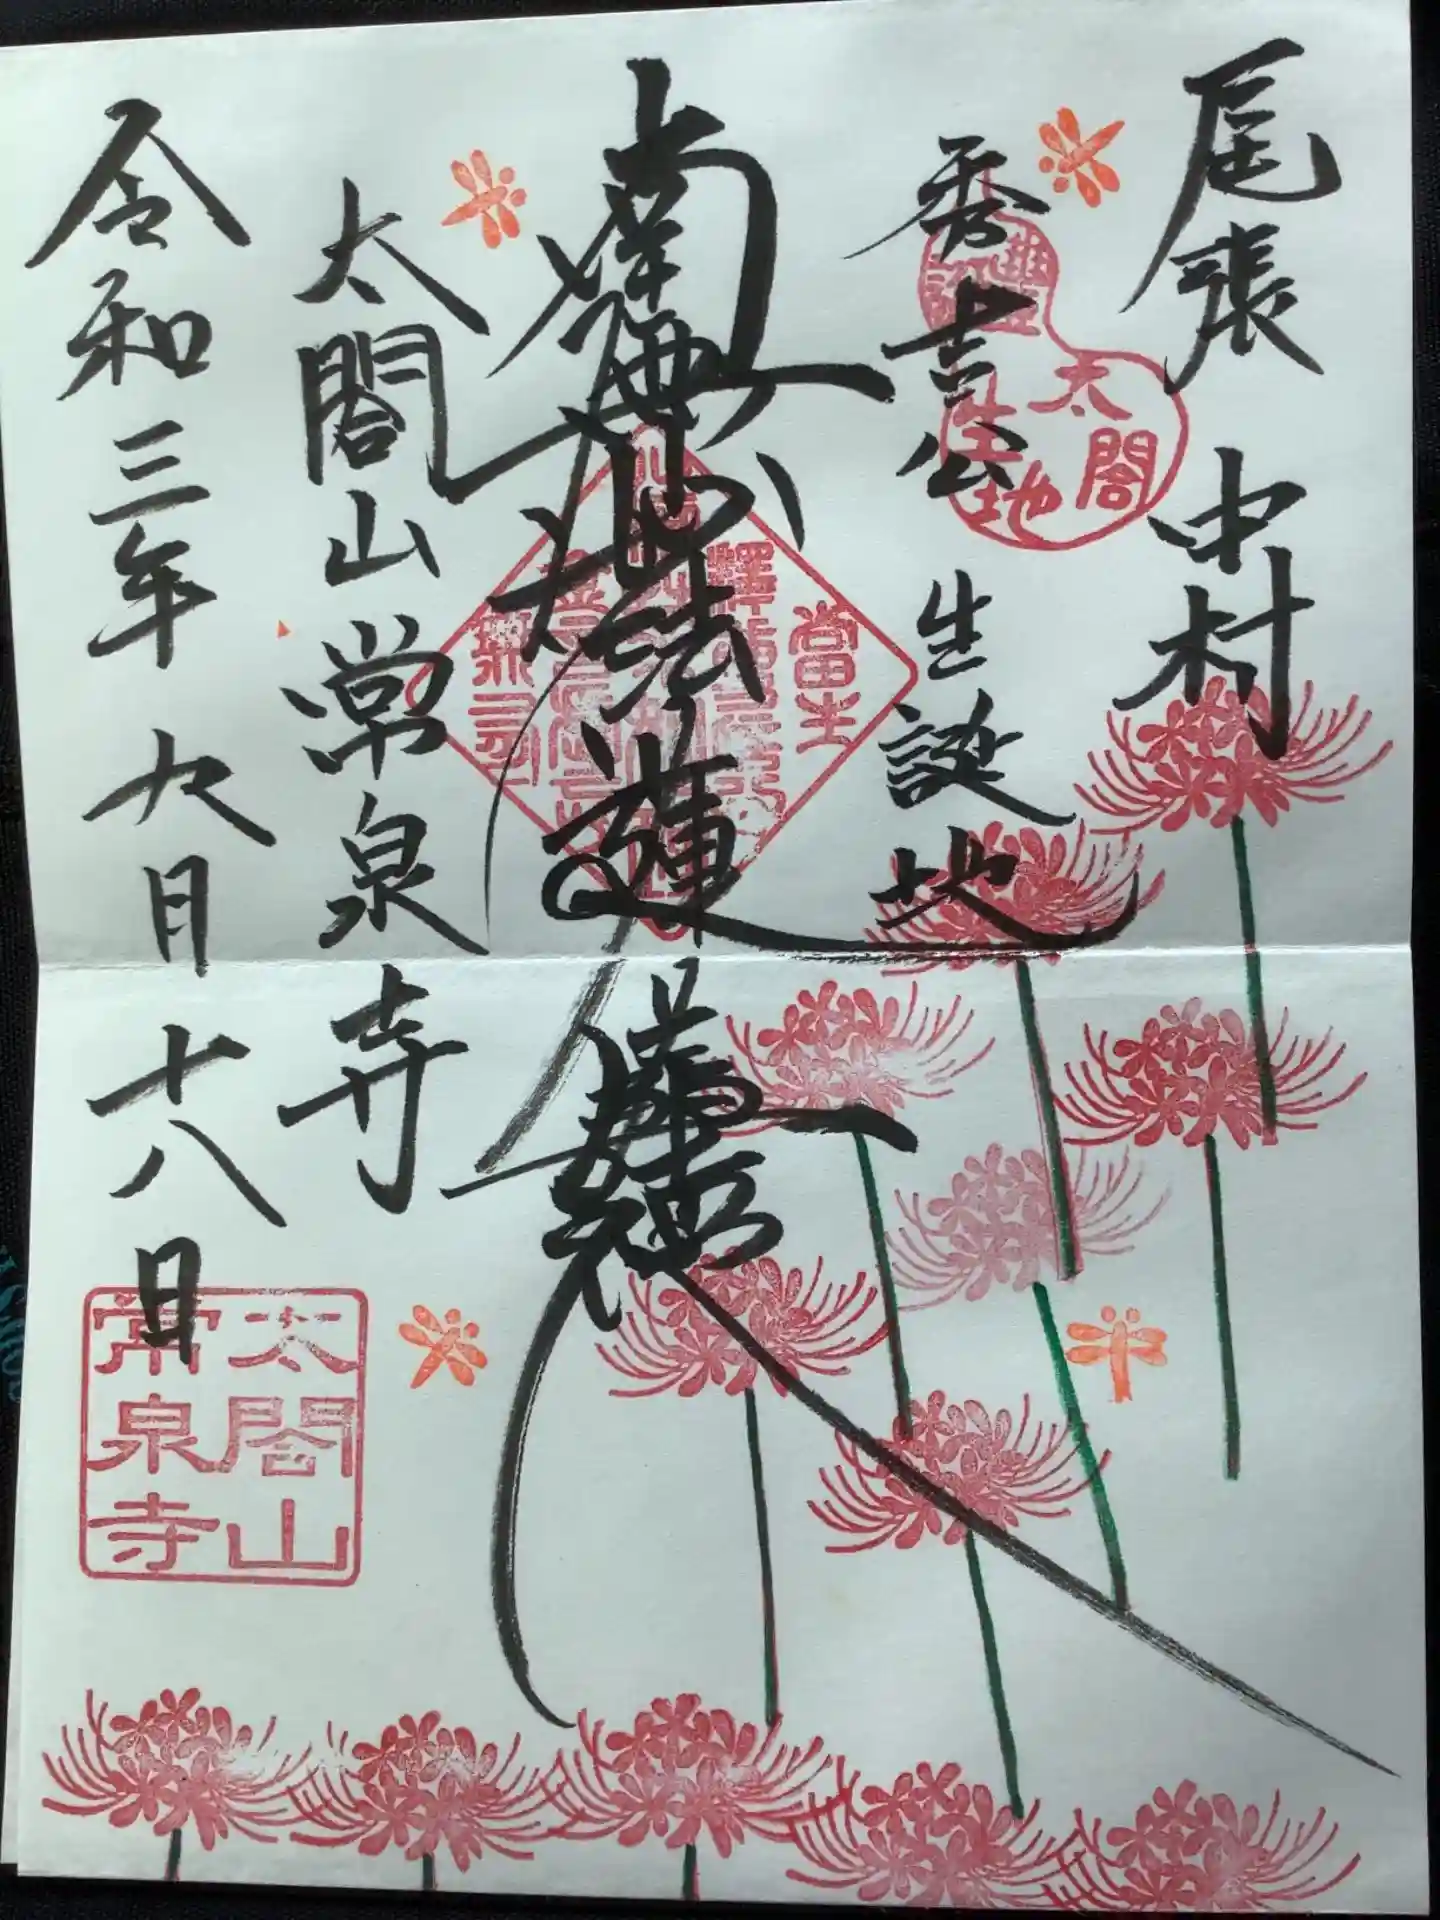 尾張 中村
秀吉公 生誕地
豊
太閤
生地
南無妙法蓮華経
當生
太閤山常泉寺
令和三年 九月 十八日
太閤山
常泉寺